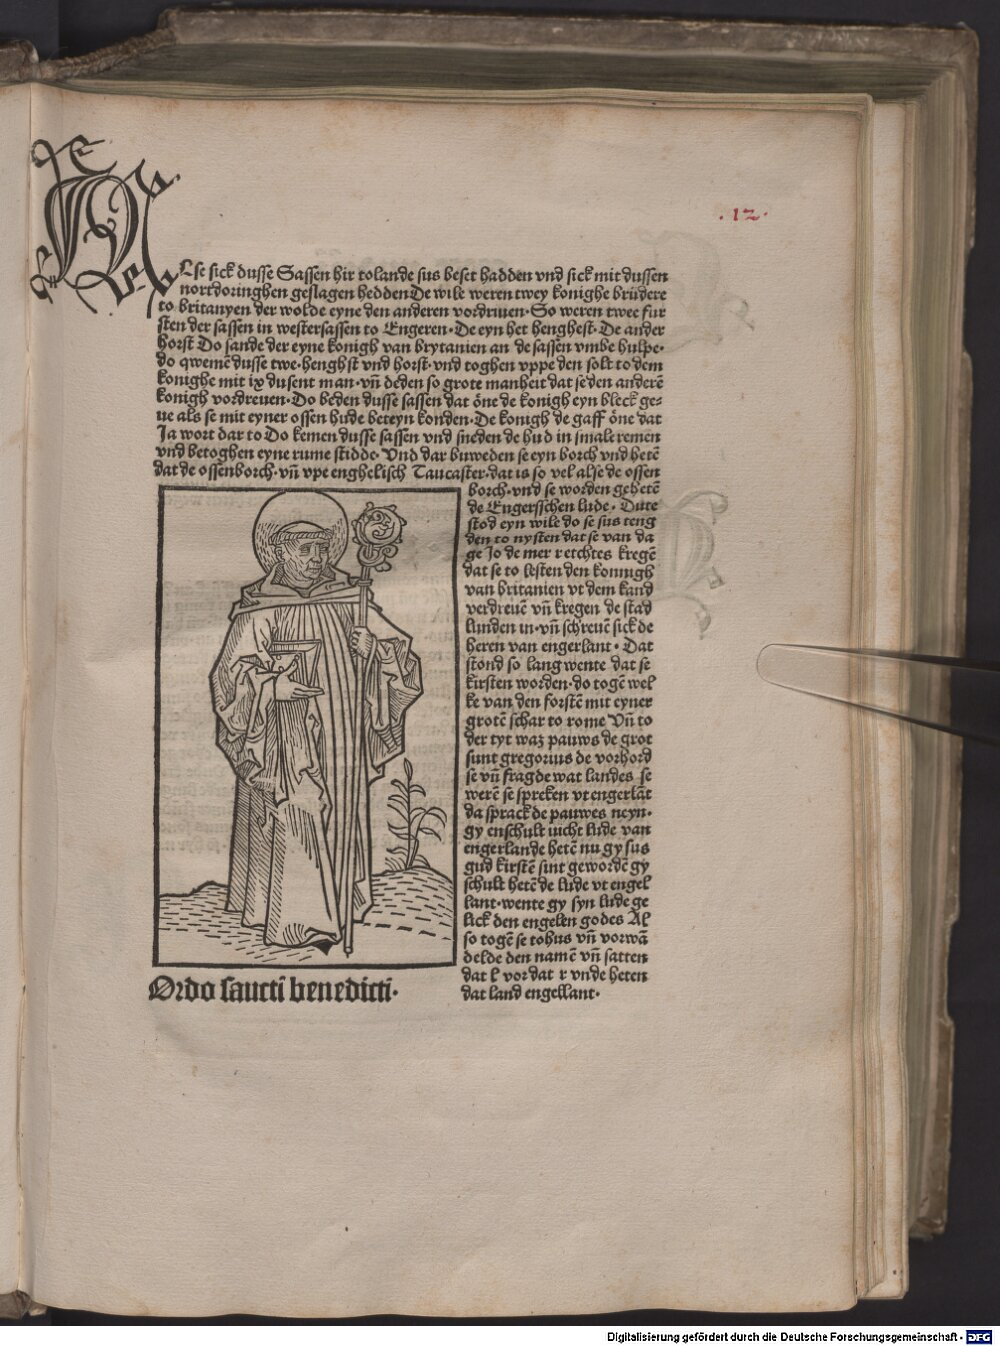 .12.
Alse sick dusse Sassen hir to lande sus beset hadden vnd sick mit dussen
nortdoringhen geslagen hedden De wile weren twey konighe brüdere
to britanyen der wolde eyne den anderen vordriuen · So weren twee fur
sten der sassen in westersassen to Engeren · De eyn het henghest · De ander
horst Do sande der eyne konigh van brytanien an de sassen vmbe hulpe ·
do qwemē dusse twe · henghst vnd horst · vnd toghen vppe den solt to dem
konighe mit ix dusent man · vn̄ deden so grote manheit dat se den anderē
konigh vordreuen · Do beden dusse sassen dat öne de konigh eyn bleck ge-
ue als se mit eyner ossen hude beteyn konden · De konigh de gaff öne dat
Ja wort dar to Do kemen dusse sassen vnd sneden de hud in smale remen
vnd betoghen eyne rume stidde · Vnd dar buweden se eyn borch vnd hetē
dat de ossenborch · vn̄ vpe enghelisch Taucaster · dat is so vel alse de ossen
borch · vnd se worden gehetē
de Engersschen lude · Dute
stod eyn wile do se sus teng
den to nysten dat se van da
ge Jo de mer r etchtes kregē
dat se to lesten den konnigh
van britanien vt dem kand
verdreuē vn̄ kregen de stad
lunden in · vn̄ schreuē sick de
heren van engerlant · Dat
stond so lang wente dat se
kirsten worden · do togē wel
ke van den forstē mit eyner
grotē schar to rome Vn̄ to
der tyt waz pauws de grot
sunt gregorius de vorhord
se vn̄ fragde wat landes se
werē se spreken vt engerlāt
da sprack de pauwes neyn ·
gy enschult nicht lude van
engerlande hetē nu gy sus
gud kirstē sint gewordē gy
schult hetē de lude vt engel
lant · wente gy syn lude ge
lick den engelen godes Al
so togē se to hus vn̄ vorwā
delde den namē vn̄ satten
dat l vor dat r vnde heten
dat land engellant ·
Ordo sancti benedicti ·
Digitalisierung gefördert durch die Deutsche Forschungsgemeinschaft - DFG